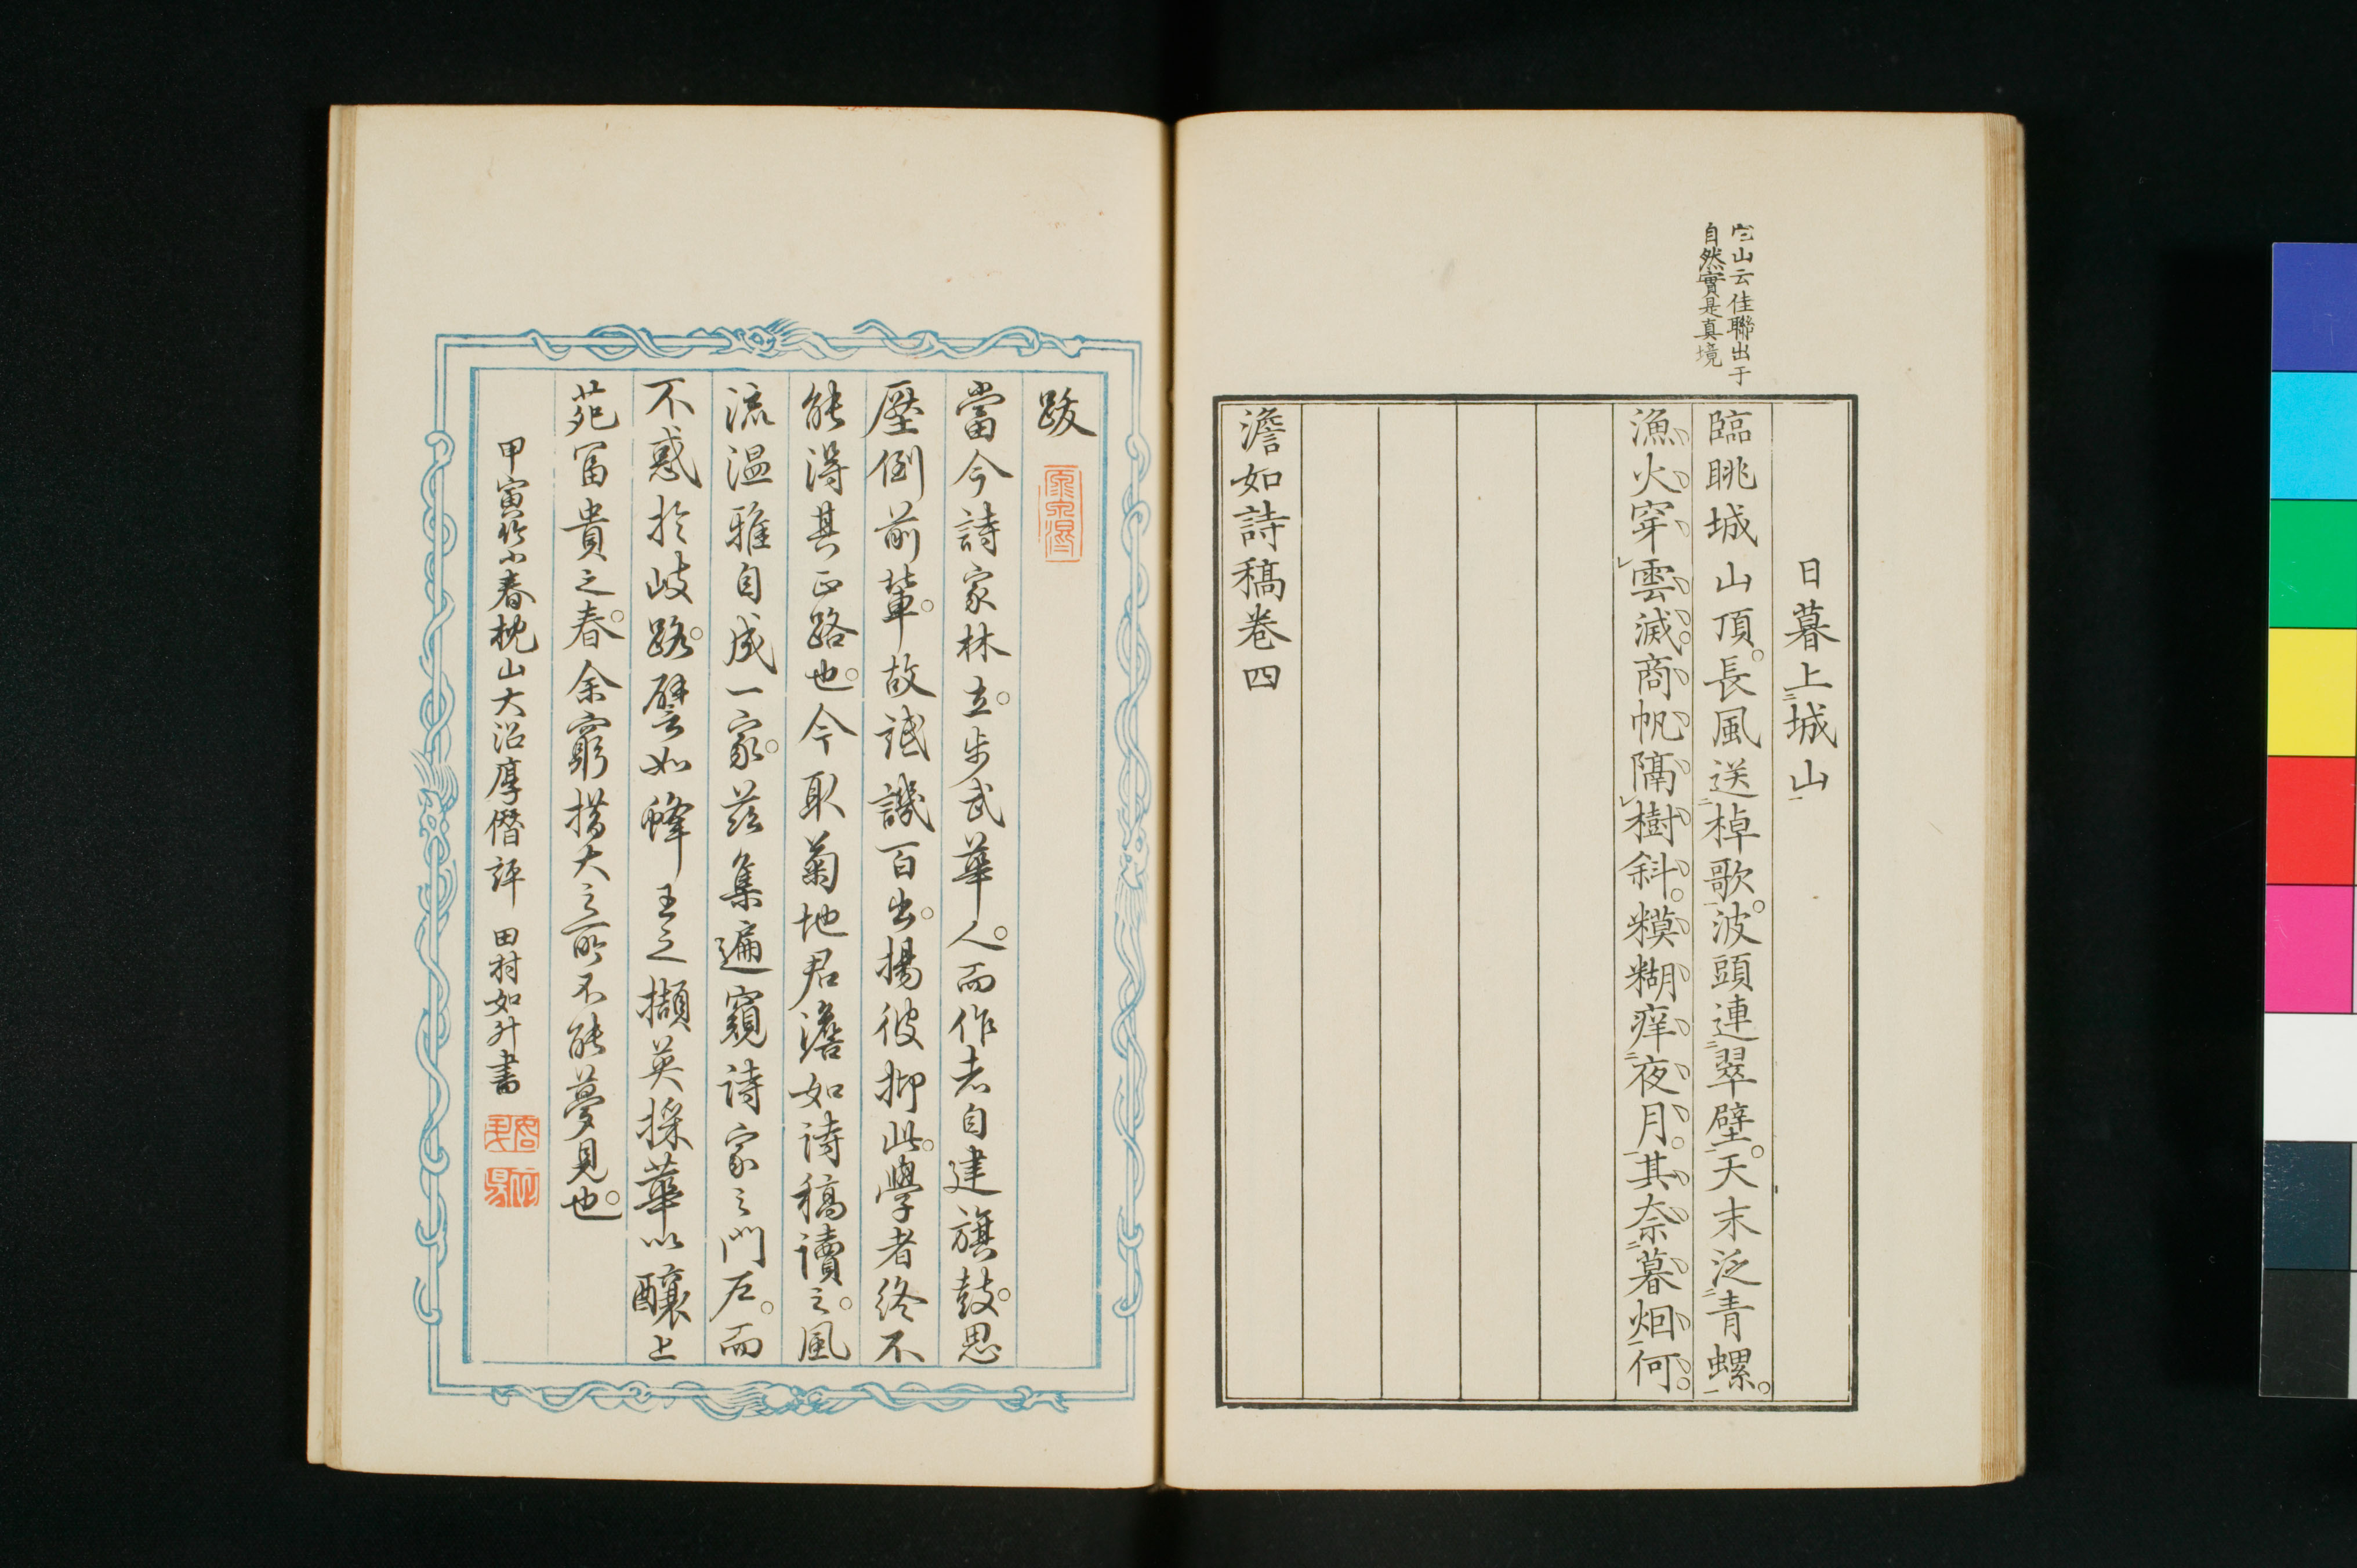 宕山云佳聯出于
自然實是真境
日暮上城山
臨眺城山頂。長風送棹歌。波頭連翠壁。天末泛青螺。
漁火穿雲滅。商帆隔樹斜。糢糊痒夜月。其奈暮烟何。
澹如詩稿卷四
跋
當今詩家林立。步武華人。而作者自建旗鼓。思
壓倒前輩。故詆譏百出。揚彼抑此。學者終不
能得其正路也。今取菊地君澹如詩稿讀之。風
流温雅自成一家。茲集遍窺詩家之門戶。而
不惑於岐路。譬如蜂王之擷英採華以釀上
苑冨貴之春。余窮措大之所不能夢見也。
甲寅竹小春枕山大沼厚僭評 田村如升書